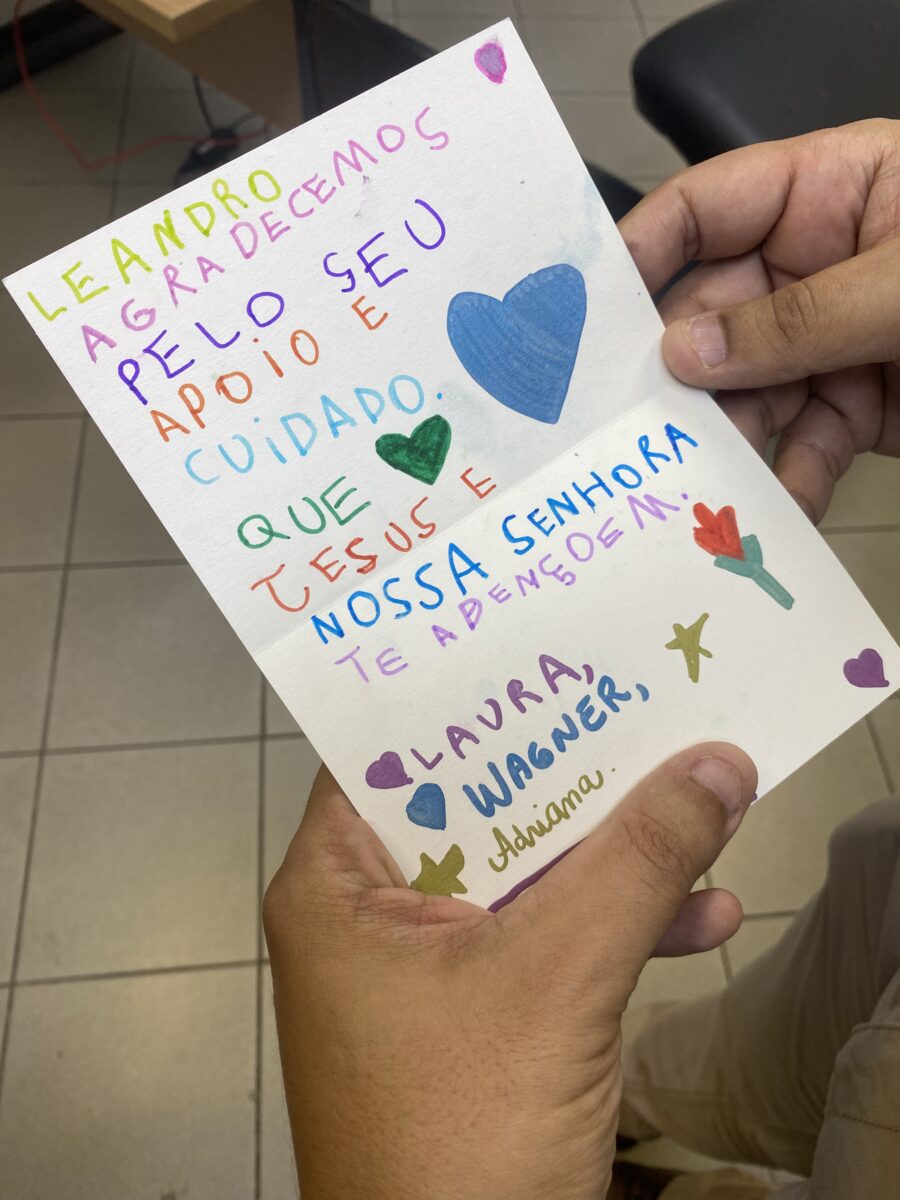 LEANDRO
AGRADECEMOS
PELO SEU
APOiO E
CUiDADO.
QUE
JESUS E
NOSSA SENHORA
TE ABENÇOEM.
LAURA,
WAGNER,
Adriana.